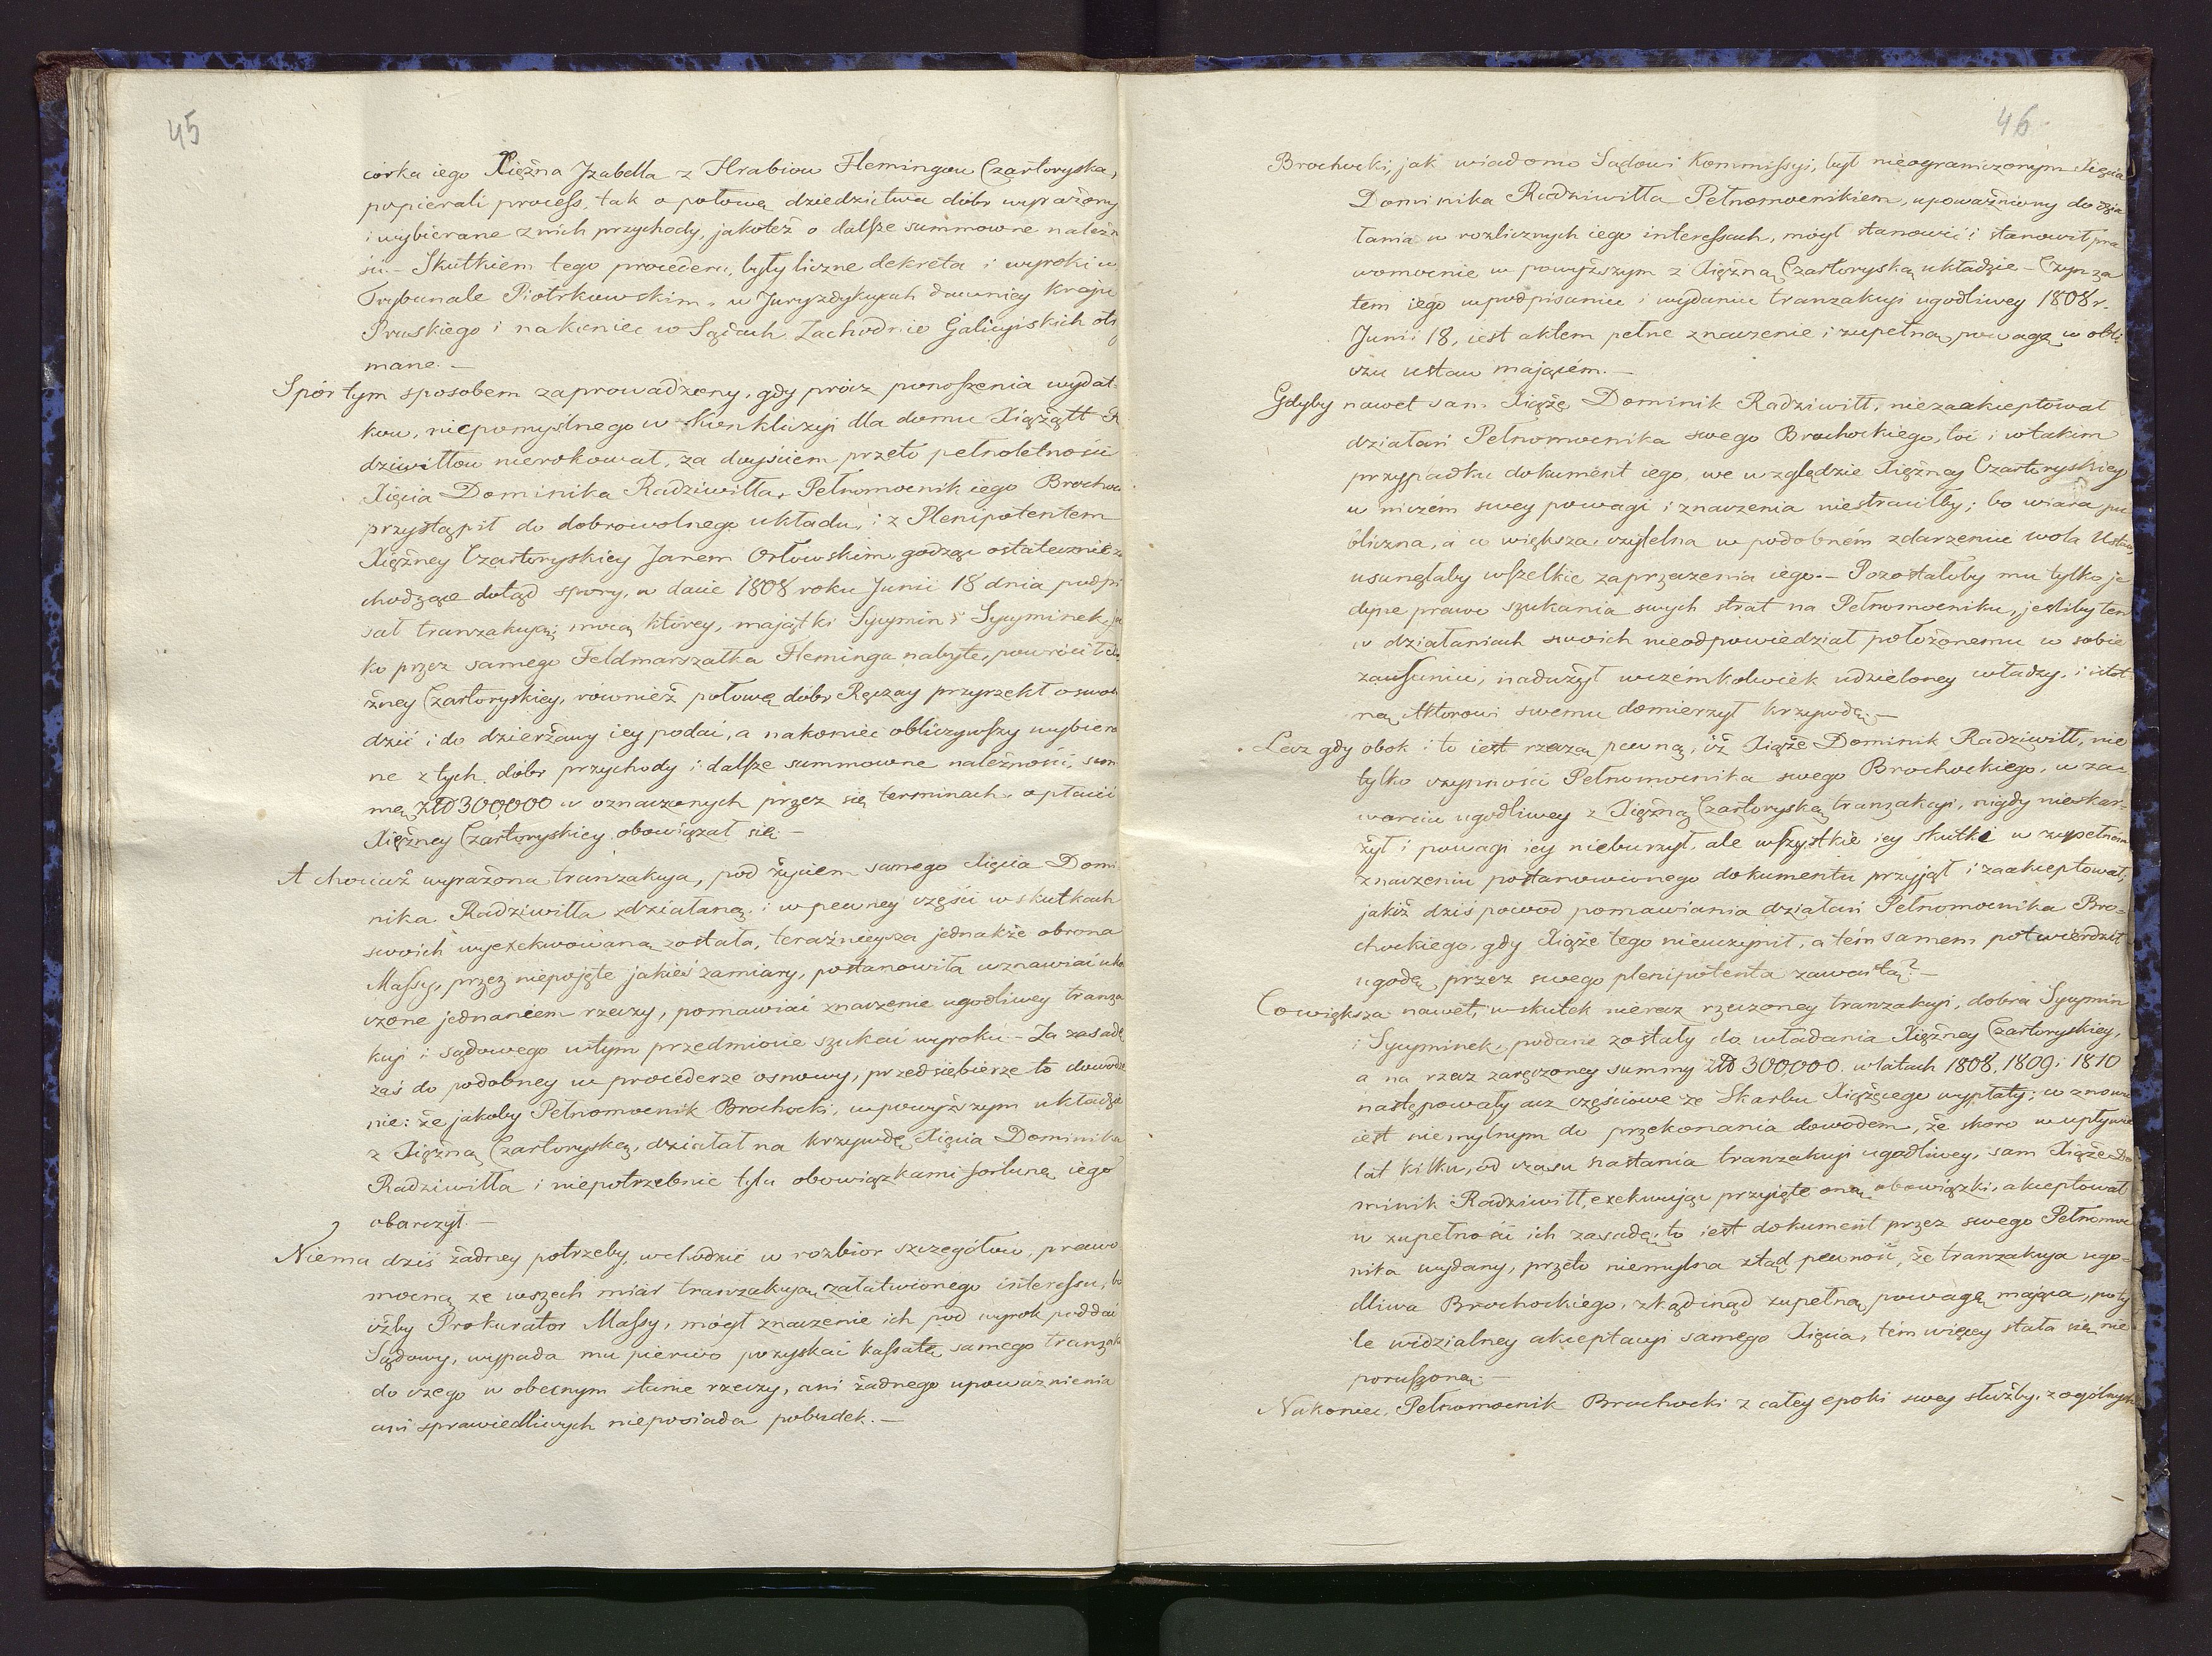 45
córka iego Xiężna Jzabella z Hrabiow Flemingow Czartoryska,
popierali process, tak o połowę dziedzictwa dóbr wyrażony
i wybierane z nich przychody, jakoteż o dalsze summowne należn
ści.- Skutkiem tego procederu, były liczne dekreta i wyroki w
Trybunale Piotrkowskim, w Juryzdykcyach dawniey Kraju
Pruskiego i nakoniec w Sądach Zachodnio Galicyiskich otrzy
mane.-
Spór tym sposobem zaprowadzony, gdy prócz ponoszenia wydat-
kow, niepomyślnego w Konkluzyi dla domu Xiążątt R
dziwiłłow nierokował, za doyściem przeto pełnoletności
Xięcia Dominika Radziwiłła, Pełnomocnik iego Brochoc
przystąpił do dobrowolnego układu, i z Plenipotentem
Xiężney Czartoryskiey Janem Orłowskim godząc ostatecznie za
chodzące dotąd spory, w dacie 1808 roku Junii 18 dnia podpi
sał tranzakcyą; mocą którey, majątki Sycymin i Sycyminek, ja
ko przez samego Feldmarszałka Fleminga nabyte, powrócił Xię
żney Czartoryskiey, również połowę dóbr Ręczay przyrzekł oswob
dzić i do dzierżawy iey podać, a nakoniec obliczywszy wybiera
ne z tych dóbr przychody i dalsze summowne należności, sum
mę złł 300,000 w oznaczonych przez się terminach, opłacić
Xiężney Czartoryskiey obowiązał się.-
A chociaż wyrażona tranzakcya, pod życiem samego Xięcia Domi
nika Radziwiłła zdziałaną, i w pewney części w skutkach
swoich wyexekwowaną została, teraźnieysza jednakże obrona
Massy, przez niepojęte jakieś zamiary, postanowiła wznawiać ukoń
czone jednaniem rzeczy, pomawiać znaczenie ugodliwey tranza
kcyi i sądowego w tym przedmiocie szukać wyroku.- Za zasadę
zaś do podobney w procederze osnowy, przedsiębierze to dowodze
nie: że jakoby Pełnomocnik Brochocki, w powyższym układzie
z Xiężną Czartoryską, działał na krzywdę Xięcia Dominika
Radziwiłła i niepotrzebnie tylu obowiązkami fortunę iego
obarczył.-
Niema dziś żadney potrzeby, wchodzić w rozbior szczegółow, prawo
mocną ze wszech miar tranzakcyą załatwionego interessu, bo
iżby Prokurator Massy, mógł znaczenie ich pod wyrok poddać
Sądowy, wypada mu pierwo pozyskać kassatę samego tranzak
do czego w obecnym stanie rzeczy, ani żadnego upoważnienia
ani sprawiedliwych nieposiada pobudek.-
46
Brochocki, jak wiadomo Sądowi Kommissyi, był nieograniczonym Xięcia
Dominika Radziwiłła Pełnomocnikiem, upoważniony do dzia
łania w rozlicznych iego interessach, mógł stanowić i stanowił pra
womocnie w powyższym z Xiężną Czartoryską układzie - Czyn za
tem iego w podpisaniu i wydaniu tranzakcyi ugodliwey 1808 r.
Junii 18, iest aktem pełne znaczenie i zupełną powagę w obli
czu ustaw mającém.-
Gdyby nawet sam Xiąże Dominik Radziwiłł, niezaakceptował
działań Pełnomocnika swego Brochockiego, toć i w takim
przypadku dokument iego, we względzie Xiężney Czartoryskiey
w niczém swey powagi i znaczenia niestraciłby; bo wiara pu
bliczna, a co większa, czytelna w podobném zdarzeniu wola Ustaw,
usunęłaby wszelkie zaprzeczenia iego.- Pozostałoby mu tylko je
dyne prawo szukania swych strat na Pełnomocniku, jesliby ten
w działaniach swoich nieodpowiedział położonemu w sobie
zaufaniu, nadużył w czémkolwiek udzieloney władzy, i istot
ną Aktorowi swemu domierzył krzywdę.-
Lecz gdy obok i to iest rzeczą pewną, iż Xiąże Dominik Radziwiłł, nie
tylko czynności Pełnomocnika swego Brochockiego, w za-
warciu ugodliwey z Xiężną Czartoryską tranzakcyi, nigdy nieskar-
żył i powagi iey nieburzył, ale wszystkie iey skutki w zupełném
znaczeniu postanowionego dokumentu przyjął i zaakceptował,
jakiż dziś powod pomawiania działań Pełnomocnika Bro-
chockiego, gdy Xiąże tego nieuczynił, a tém samem potwierdził
ugodę przez swego plenipotenta zawartą?-
Co większa nawet, w skutek nieraz rzeczoney tranzakcyi, dobra Sycymin
i Sycyminek, podane zostały do władania Xiężney Czartoryskiey,
a na rzecz zaręczoney summy złł 300000. w latach 1808, 1809 i 1810
następowały acz częściowe ze Skarbu Xiążęcego wypłaty; w znowu
iest niemylnym do przekonania dowodem, że skoro w upływie
lat kilku, od czasu nastania tranzakcyi ugodliwey, sam Xiąże Do
minik Radziwiłł, exekwując przyjęte oną obowiązki, akceptował
w zupełności ich zasadę, to iest dokument przez swego Pełnomoc
nika wydany, przeto niemylna ztąd pewność, że tranzakcya ugo-
dliwa Brochockiego, zkądinąd zupełną powagę mająca, po ty
le widzialney akceptacyi samego Xięcia, tém więcey stała się nie
poruszoną.-
Nakoniec, Pełnomocnik Brochocki z całey epoki swey służby, z ogólnych